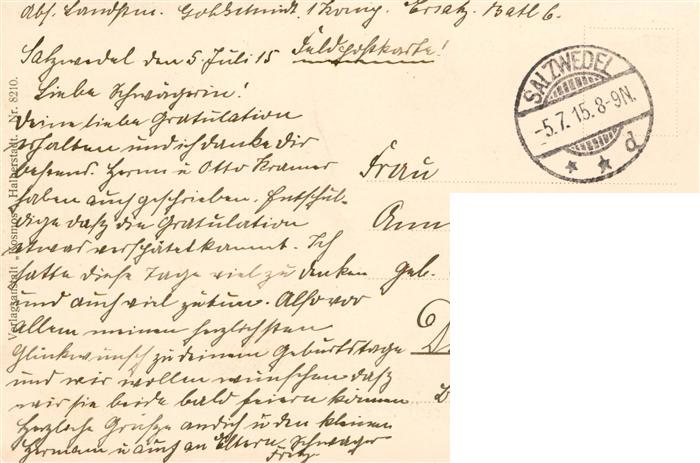 Abs. Landstm. Goldschmidt, 1 Komp. Ersatz. Batl 6.
Salzwedel den 5 Juli 15 Feldpostkarte!
Liebe Schwägerin!
Deine liebe Gratulation
erhalten und ich danke Dir
bestens. Herm u Otto Kramer
haben auch geschrieben. Entschul-
dige dasz die Gratulation
etwas verspätet kommt. Ich
hatte diese Tage viel zu denken
und auch viel zu tun. Also vor
allem meinen herzlichsten
Glückwunsch zu deinem Geburtstage
und wir wollen wünschen dasz
wir sie beide bald feiern können
Herzliche Grüsze an dich u den kleinen
Hermann u auch an Eltern, Schwager
Fritz
Frau
Ann
geb.
D
SALZWEDEL
-5.7.15.8-9N.
d
Verlagsanstalt „Kosmos", Halberstadt. Nr. 8210.